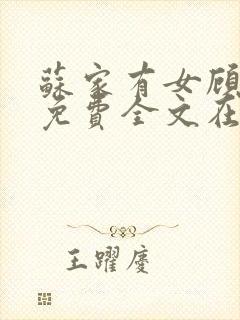 蘇家有女顾
免費全文在
王躍慶